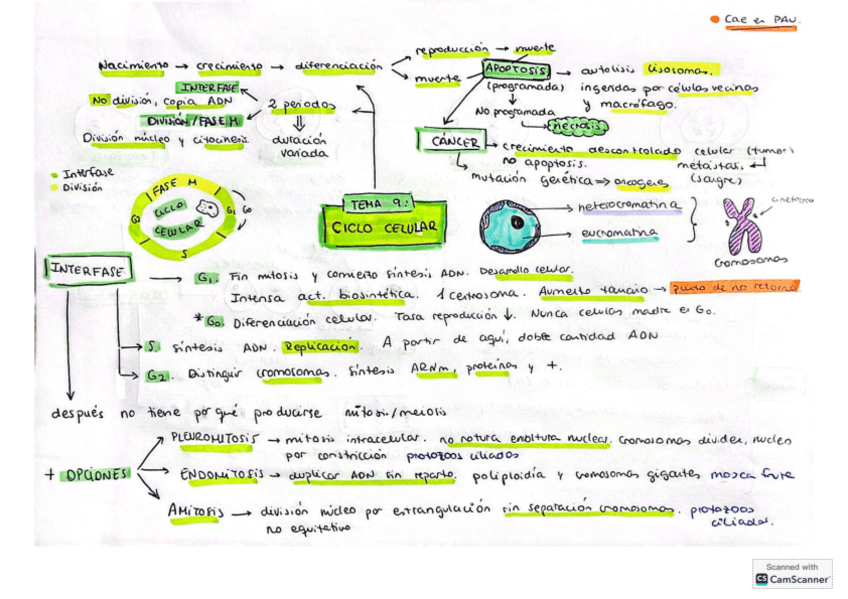 Cae en PAU.
Nacimiento → crecimiento → diferenciación
reproducción → muerte
muerte
APOPTOSIS → autolisis lisosomas.
(programada) ingeridas por células vecinas
y macrófago.
No programada
necrosis
INTERFASE
No división, copia ADN
2 periodos
DIVISIÓN/FASE M
División núcleo y citocinesis.
duración
variada
CÁNCER → crecimiento descontrolado celular (tumor)
no apoptosis. metástasis.
(sangre)
mutación genética ⇒ oncogenes
Interfase
División
FASE M
CICLO
CELULAR
G1 G0
G2
S
TEMA 9:
CICLO CELULAR
heterocromatina
eucromatina
cromosomas
INTERFASE
G1. Fin mitosis y comienzo síntesis ADN. Desarrollo celular.
Intensa act. biosintética. 1 centrosoma. Aumento tamaño → punto de no retorno
* G0. Diferenciación celular. Tasa reproducción ↓. Nunca celulas madre en G0.
S. síntesis ADN. Replicación. A partir de aquí, doble cantidad ADN
G2. Distinguir cromosomas. Síntesis ARNm, proteínas y +.
después no tiene por qué producirse mitosis/meiosis
+ OPCIONES
PLEUROMITOSIS → mitosis intracelular. no rotura envoltura nuclear. Cromosomas dividen, nucleo
por constricción protozoos ciliados
ENDOMITOSIS → duplicar ADN sin reparto. poliploidía y cromosomas gigantes mosca fruta
AMITOSIS → división núcleo por estrangulación sin separación cromosomas. protozoos
no equitativo ciliados.
Scanned with
CS CamScanner